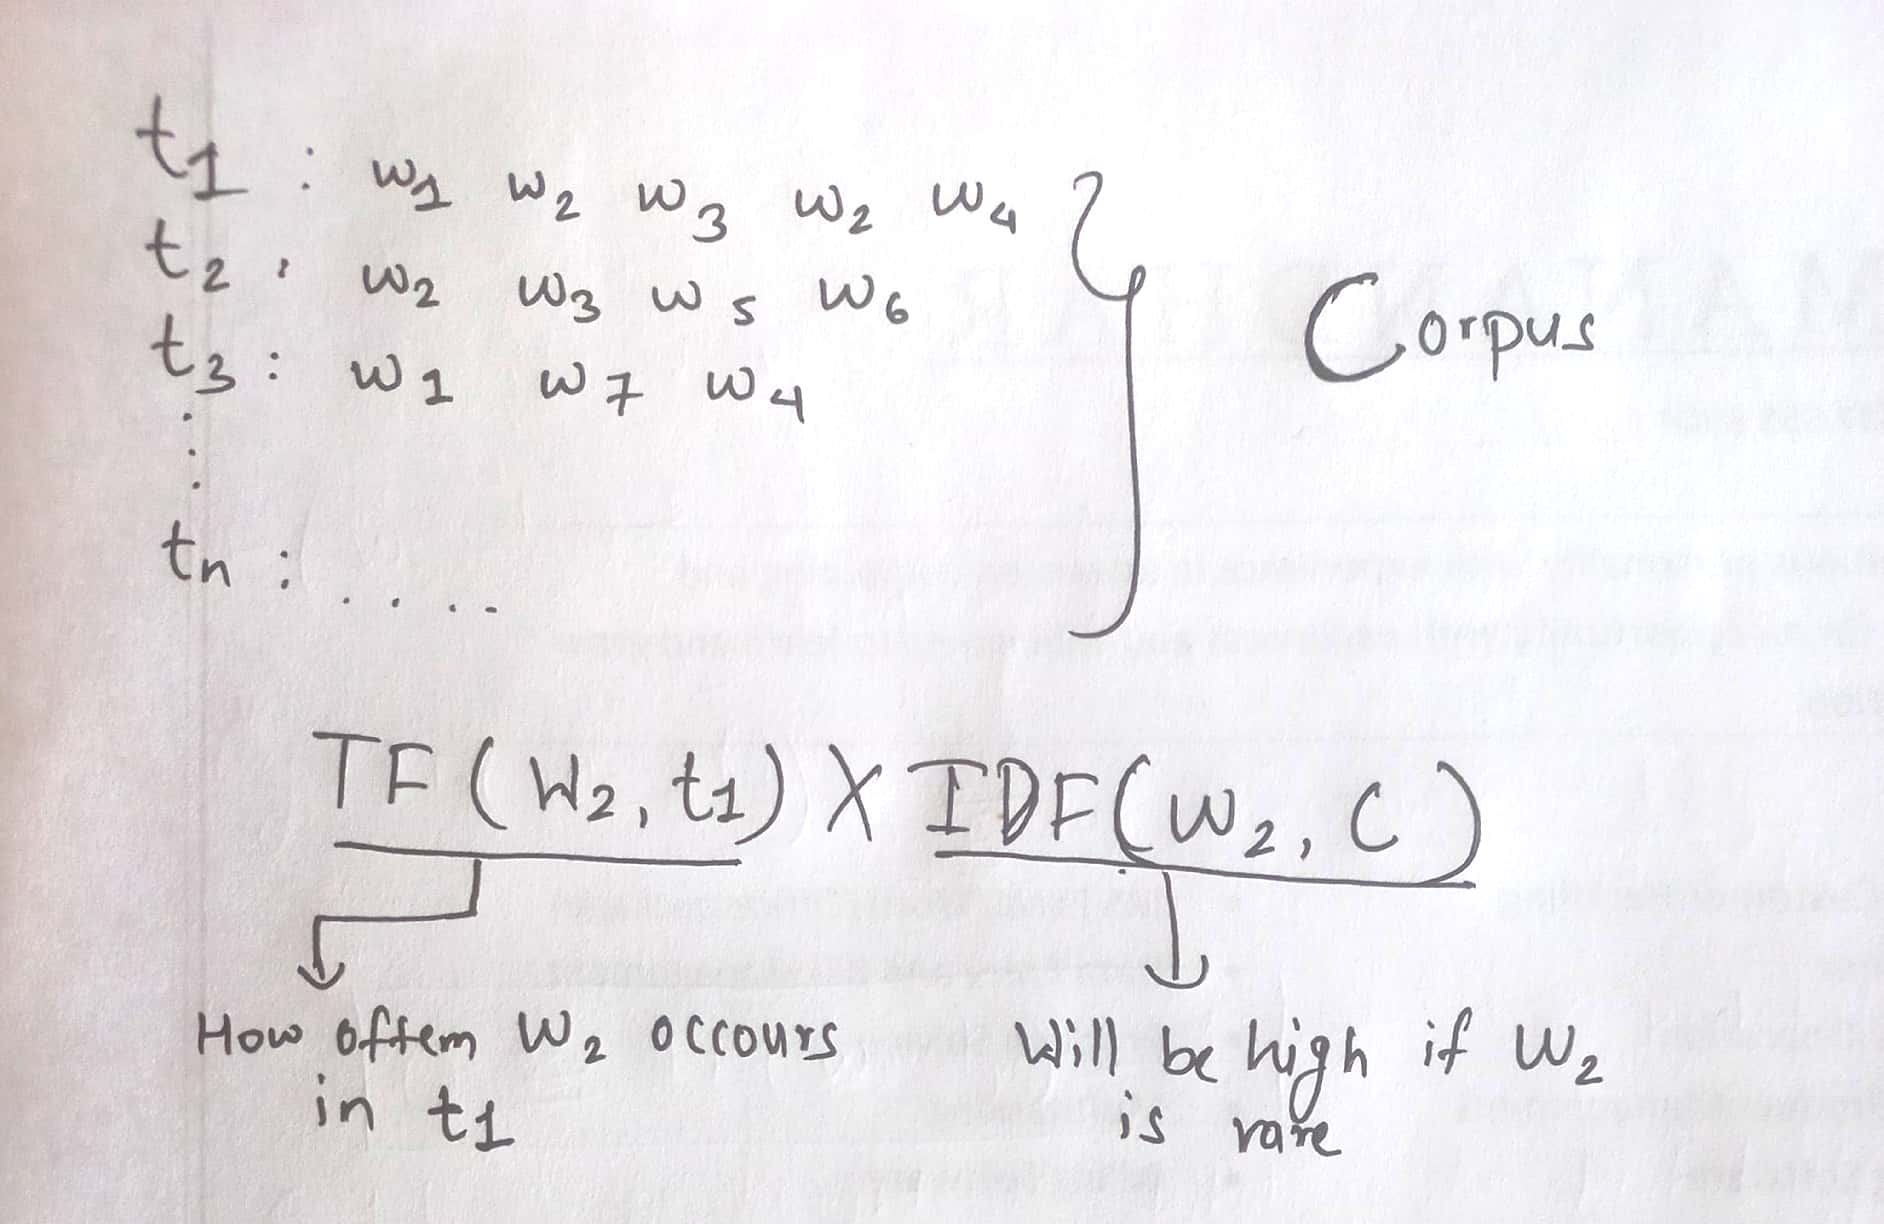 t1 : w1 w2 w3 w2 w4
t2 : w2 w3 w5 w6
t3 : w1 w7 w4
Corpus
tn : ....
TF ( W2, t1) X IDF( w2, C )
How oftem W2 occours
in t1
Will be high if W2
is rare